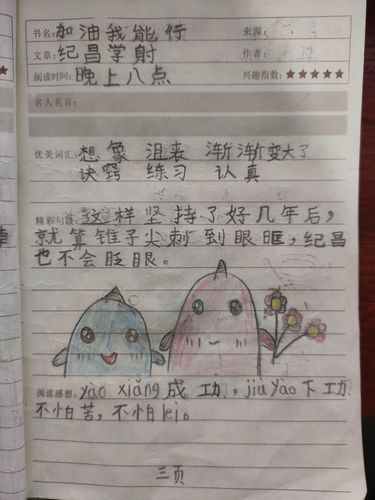 书名:加油我能行 来源:
文章:纪昌学射 作者:
阅读时间:晚上八点 兴趣指数:★★★★★
名人名言:
优美词汇:想象 沮丧 渐渐变大了
诀窍 练习 认真
精彩句段:这样坚持了好几年后,
就算锥子尖刺到眼眶,纪昌
也不会眨眼。
阅读感想:yào xiǎng成功,jiù yào下功
不怕苦,不怕lèi。
三页